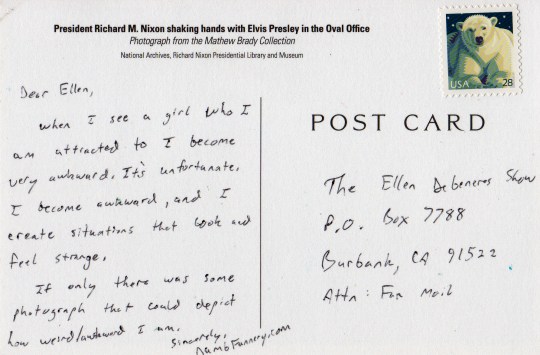 President Richard M. Nixon shaking hands with Elvis Presley in the Oval Office
Photograph from the Mathew Brady Collection
National Archives, Richard Nixon Presidential Library and Museum
USA 28
Dear Ellen,
When I see a girl who I
am attracted to I become
very awkward. It's unfortunate.
I become awkward, and I
create situations that look and
feel strange.
If only there was some
photograph that could depict
how weird/awkward I am.
Sincerely,
DumbFunnery.com
POST CARD
The Ellen Degeneres Show
P.O. Box 7788
Burbank, CA 91522
Attn: Fan Mail